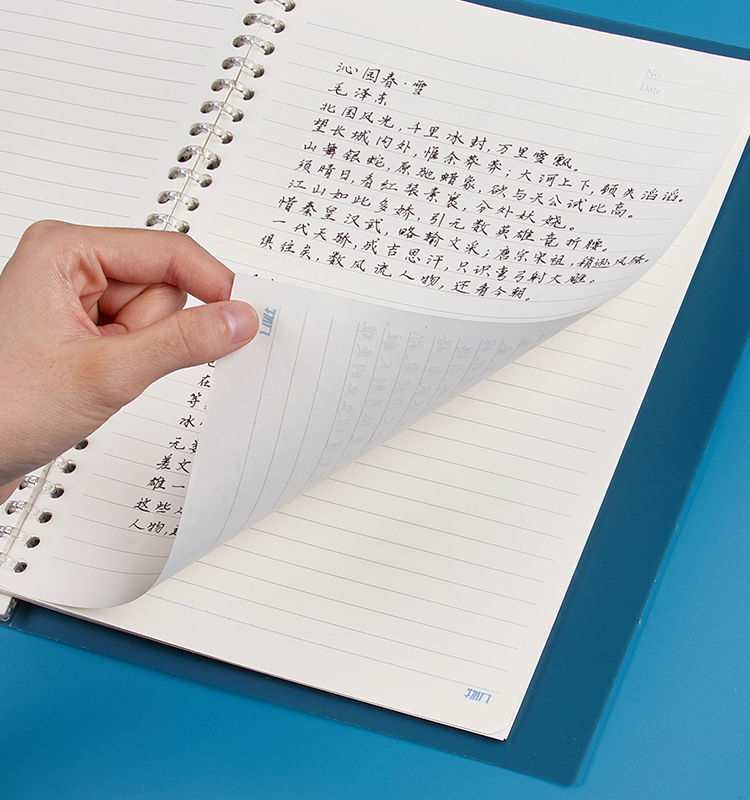 No.
Date
沁园春·雪
毛泽东
北国风光,千里冰封,万里雪飘。
望长城内外,惟余莽莽;大河上下,顿失滔滔。
山舞银蛇,原驰蜡象,欲与天公试比高。
须晴日,看红装素裹,分外妖娆。
江山如此多娇,引无数英雄竞折腰。
惜秦皇汉武,略输文采;唐宗宋祖,稍逊风骚。
一代天骄,成吉思汗,只识弯弓射大雕。
俱往矣,数风流人物,还看今朝。
在
等
冰
无
差文
雄一
这些
人物,